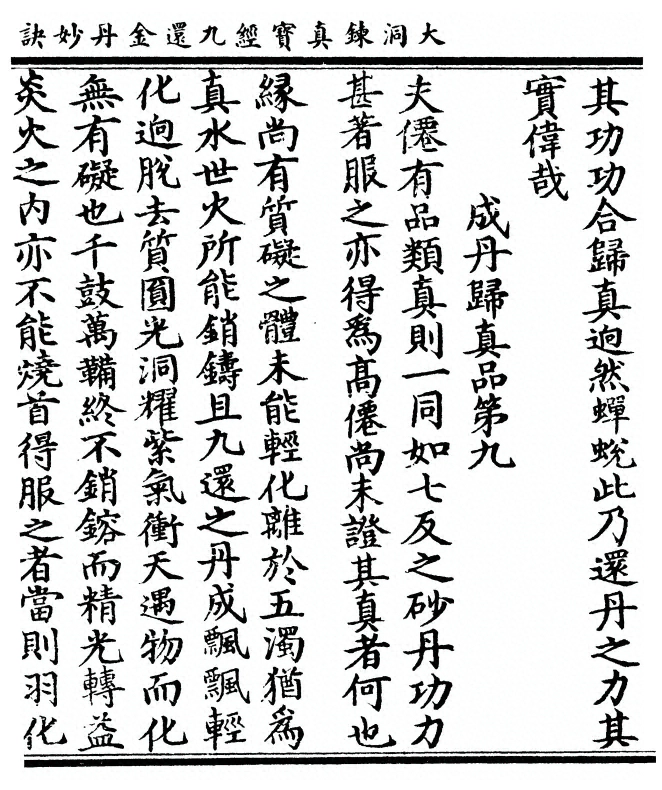 大洞鍊真寳經九還金丹妙訣
其功功合歸真逈然蟬蛻此乃還丹之力其
實偉哉
成丹歸真品第九
夫僊有品類真則一同如七反之砂丹功力
甚著服之亦得爲髙僊尚未證其真者何也
縁尚有質礙之體未能輕化離於五濁猶爲
真水世火所能銷鑄且九還之丹成飄飄輕
化逈脫去質圓光洞耀紫氣衝天遇物而化
無有礙也千鼓萬鞴終不銷鎔而精光轉益
炎火之内亦不能燒首得服之者當則羽化